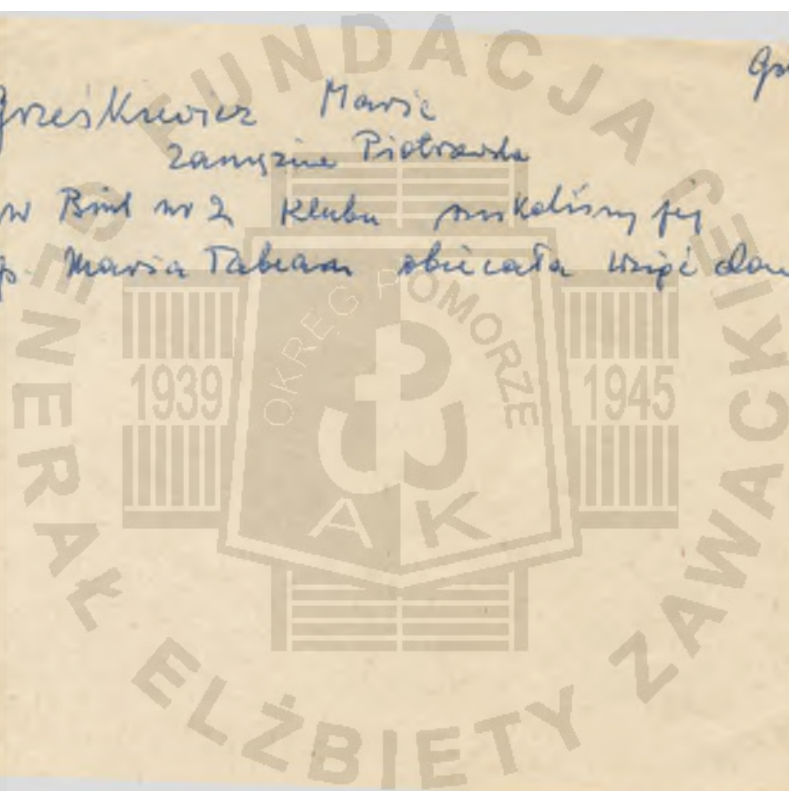 Gr
Grześkiewicz Maria
zamężna Piotrowska
w Biul nr 2 Klubu szukaliśmy jej
p. Maria obiecała wziąć
FUNDACJA
GENERAŁ ELŻBIETY ZAWACKIEJ
OKRĘG POMORZE
1939
1945
A K